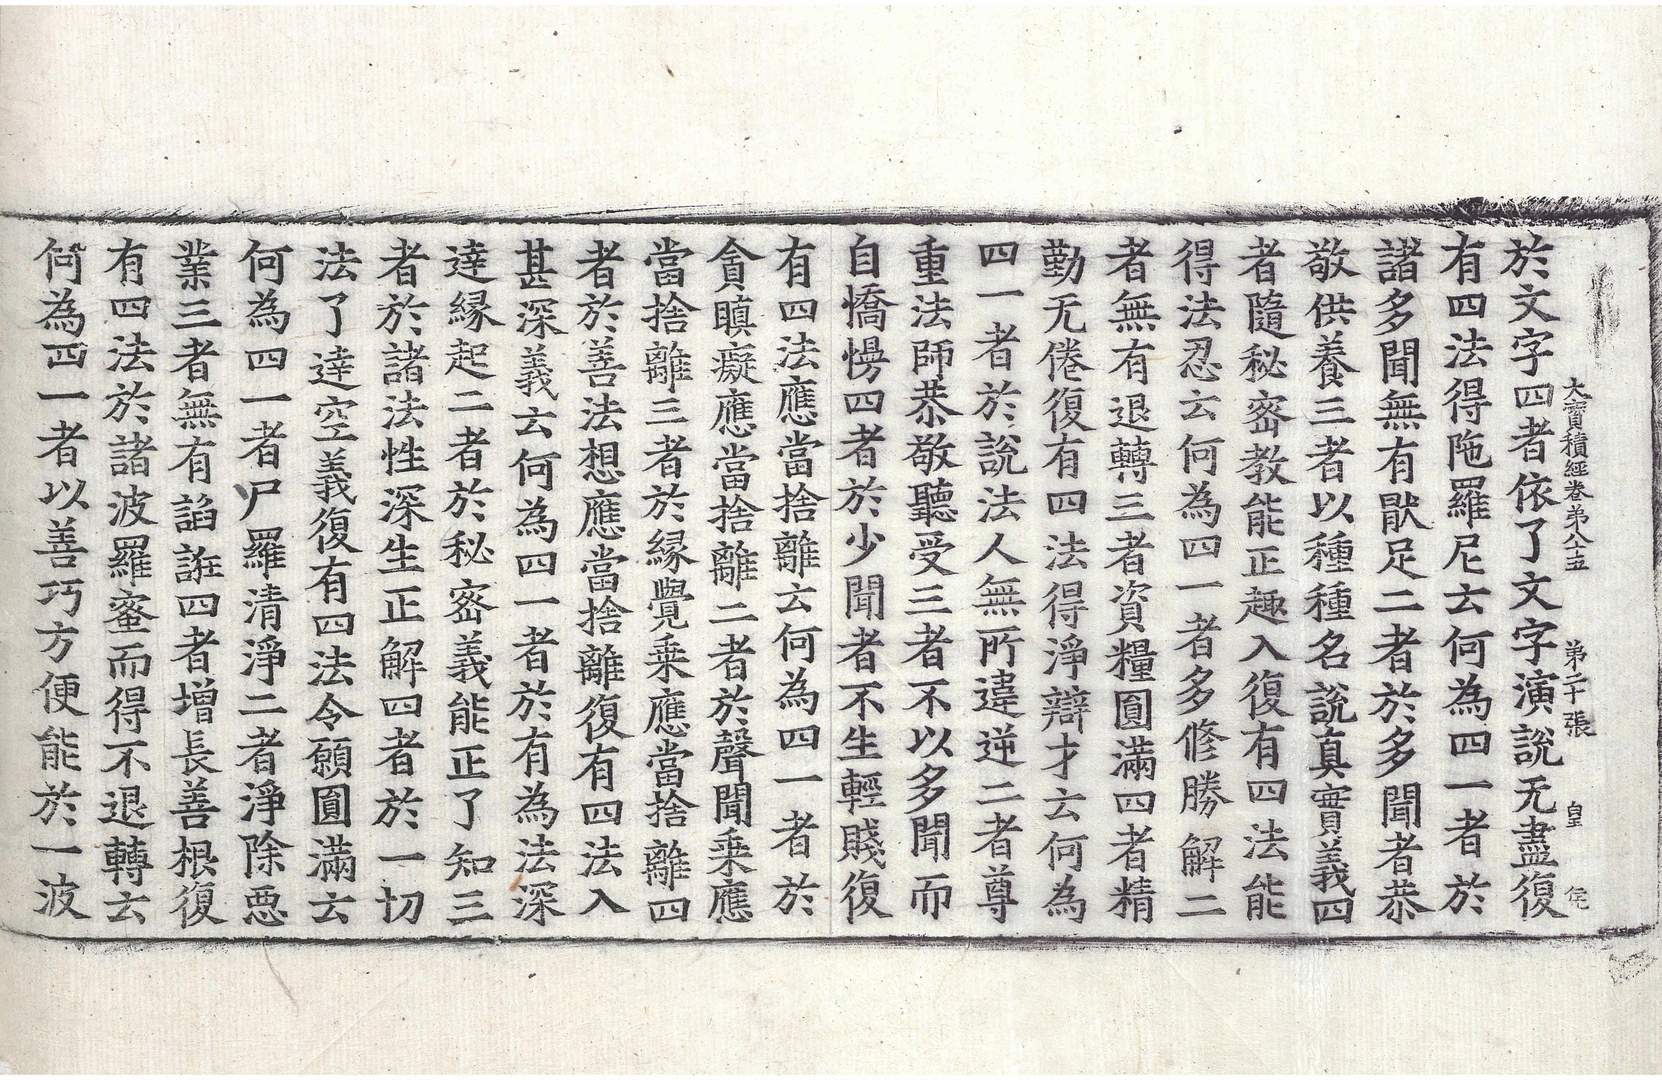 大寶積經卷第八十五 第二十張 皇
於文字四者依了文字演說无盡復
有四法得陁羅尼云何為四一者於
諸多聞無有猒足二者於多聞者恭
敬供養三者以種種名說真實義四
者隨秘密教能正趣入復有四法能
得法忍云何為四一者多修勝解二
者無有退轉三者資糧圓滿四者精
勤无倦復有四法得淨辯才云何為
四一者於說法人無所違逆二者尊
重法師恭敬聽受三者不以多聞而
自憍慢四者於少聞者不生輕賤復
有四法應當捨離云何為四一者於
貪瞋癡應當捨離二者於聲聞乗應
當捨離三者於緣覺乗應當捨離四
者於善法想應當捨離復有四法入
甚深義云何為四一者於有為法深
達緣起二者於秘密義能正了知三
者於諸法性深生正解四者於一切
法了達空義復有四法令願圓滿云
何為四一者尸羅清淨二者淨除惡
業三者無有諂誑四者增長善根復
有四法於諸波羅蜜而得不退轉云
何為四一者以善巧方便能於一波